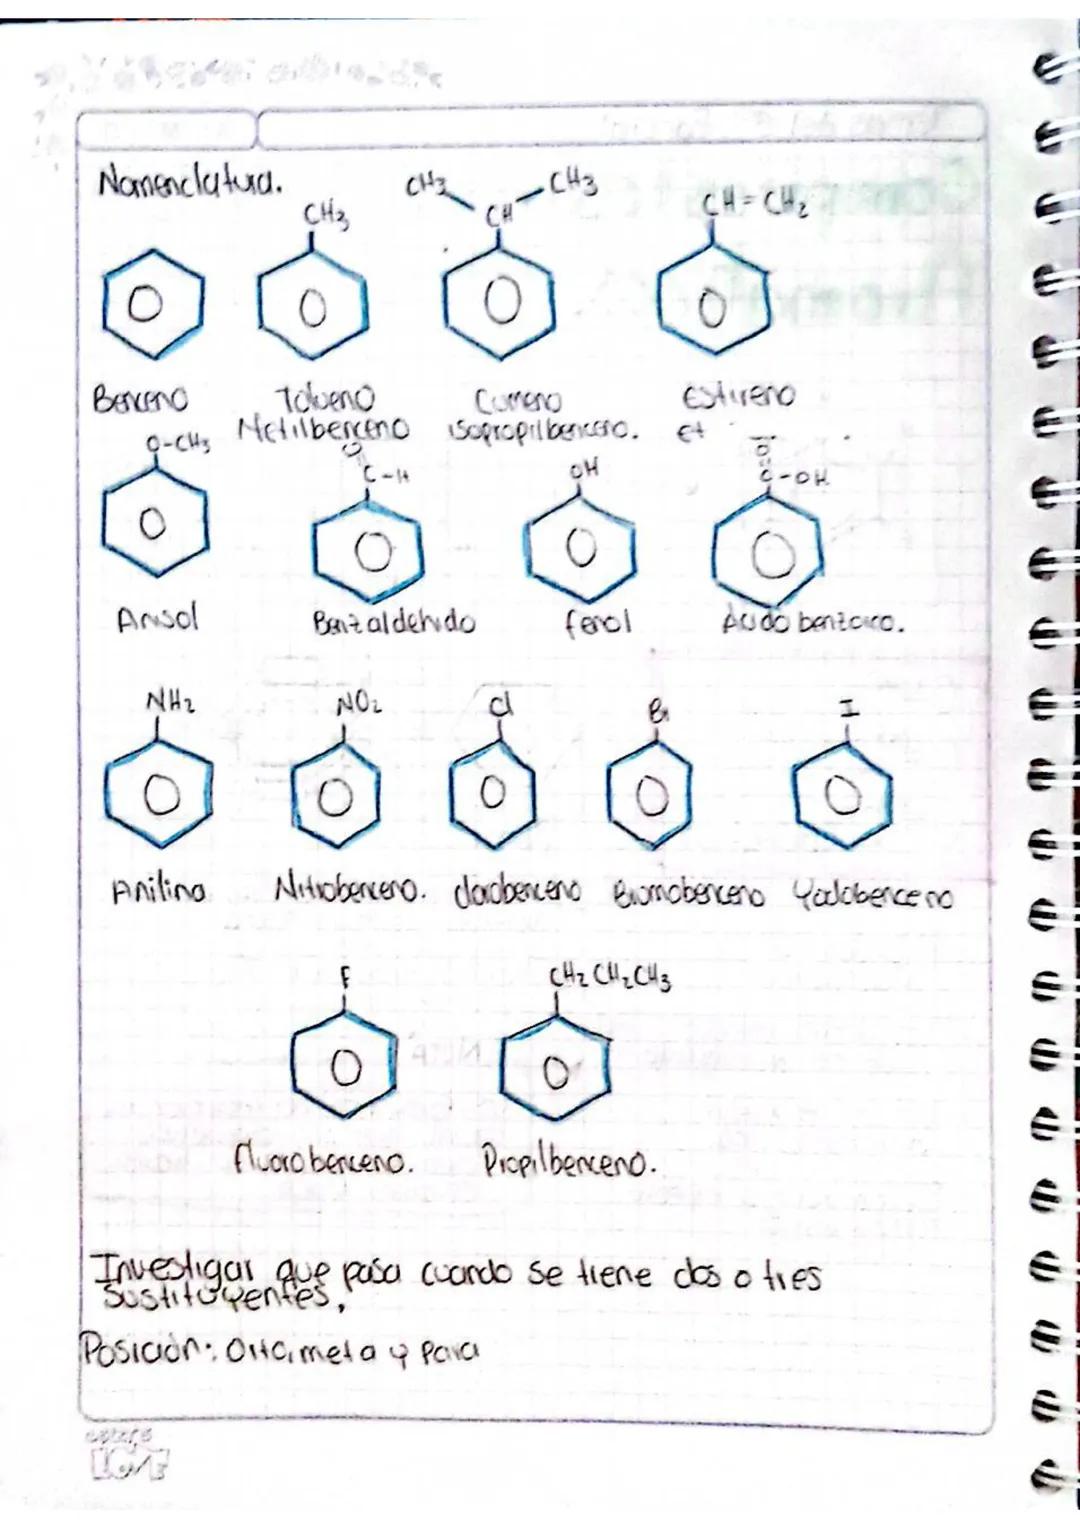 Nomenclatura.
CH3 CH CH3
CH3
CH=CH2
Benceno
Tolueno
Metilbenceno
Cumeno
isopropilbenceno.
Estireno
Et
O-CH3
O
C-H
OH
O
C-OH
Anisol
Benzaldehido
fenol
Acido benzoico.
NH2
NO2
Cl
Br
I
Anilina
Nitrobenceno.
clorobenceno
Bromobenceno
Yodobenceno
F
CH2CH2CH3
fluorobenceno.
Propilbenceno.
Investigar que pasa cuando se tiene dos o tres
sustituyentes.
Posición: Orto, meta y para
LOVE